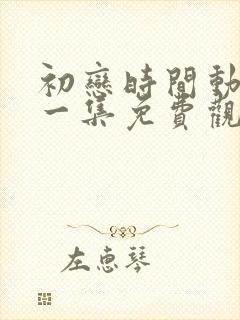 初戀時間動
一集免費觀
左惠琴